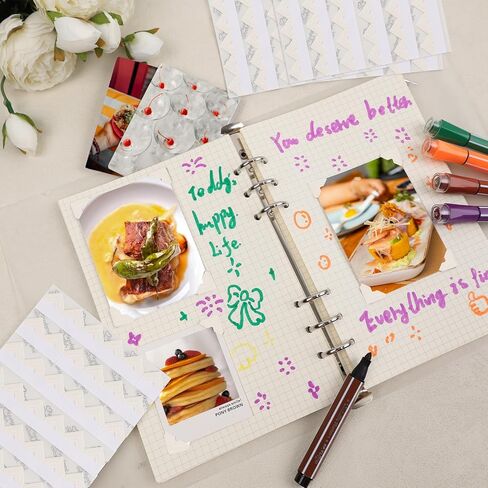 Toddy,
happy
Life
PONY BROWN
You deserve better
Everything is fin